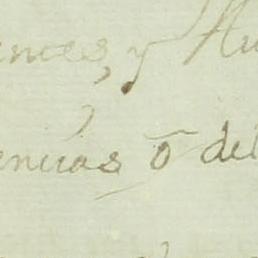 ences, y
encias ō del